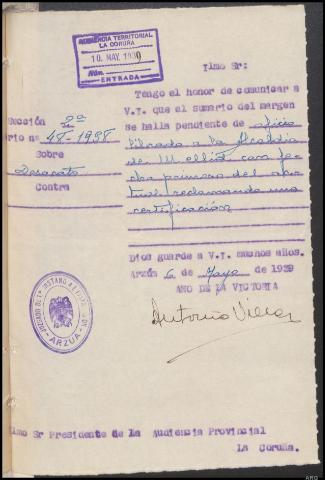 AUDIENCIA TERRITORIAL
LA CORUÑA
10. MAY. 1939
Núm.
ENTRADA
Ilmo Sr:
Tengo el honor de comunicar a
V.I. que el sumario del margen
se halla pendiente de oficio
librado a la Alcaldía
de Mellid con fe-
cha primero del ac-
tual reclamando una
certificación
Sección 2ª
rio nº 48-1938
Sobre
Desacato
Contra
Dios guarde a V.I. muchos años.
Arzúa 6 de Mayo de 1939
AÑO DE LA VICTORIA
Antonio
JUZGADO DE 1ª INSTANCIA E
ARZUA
Ilmo Sr Presidente de la Audiencia Provincial
La Coruña.